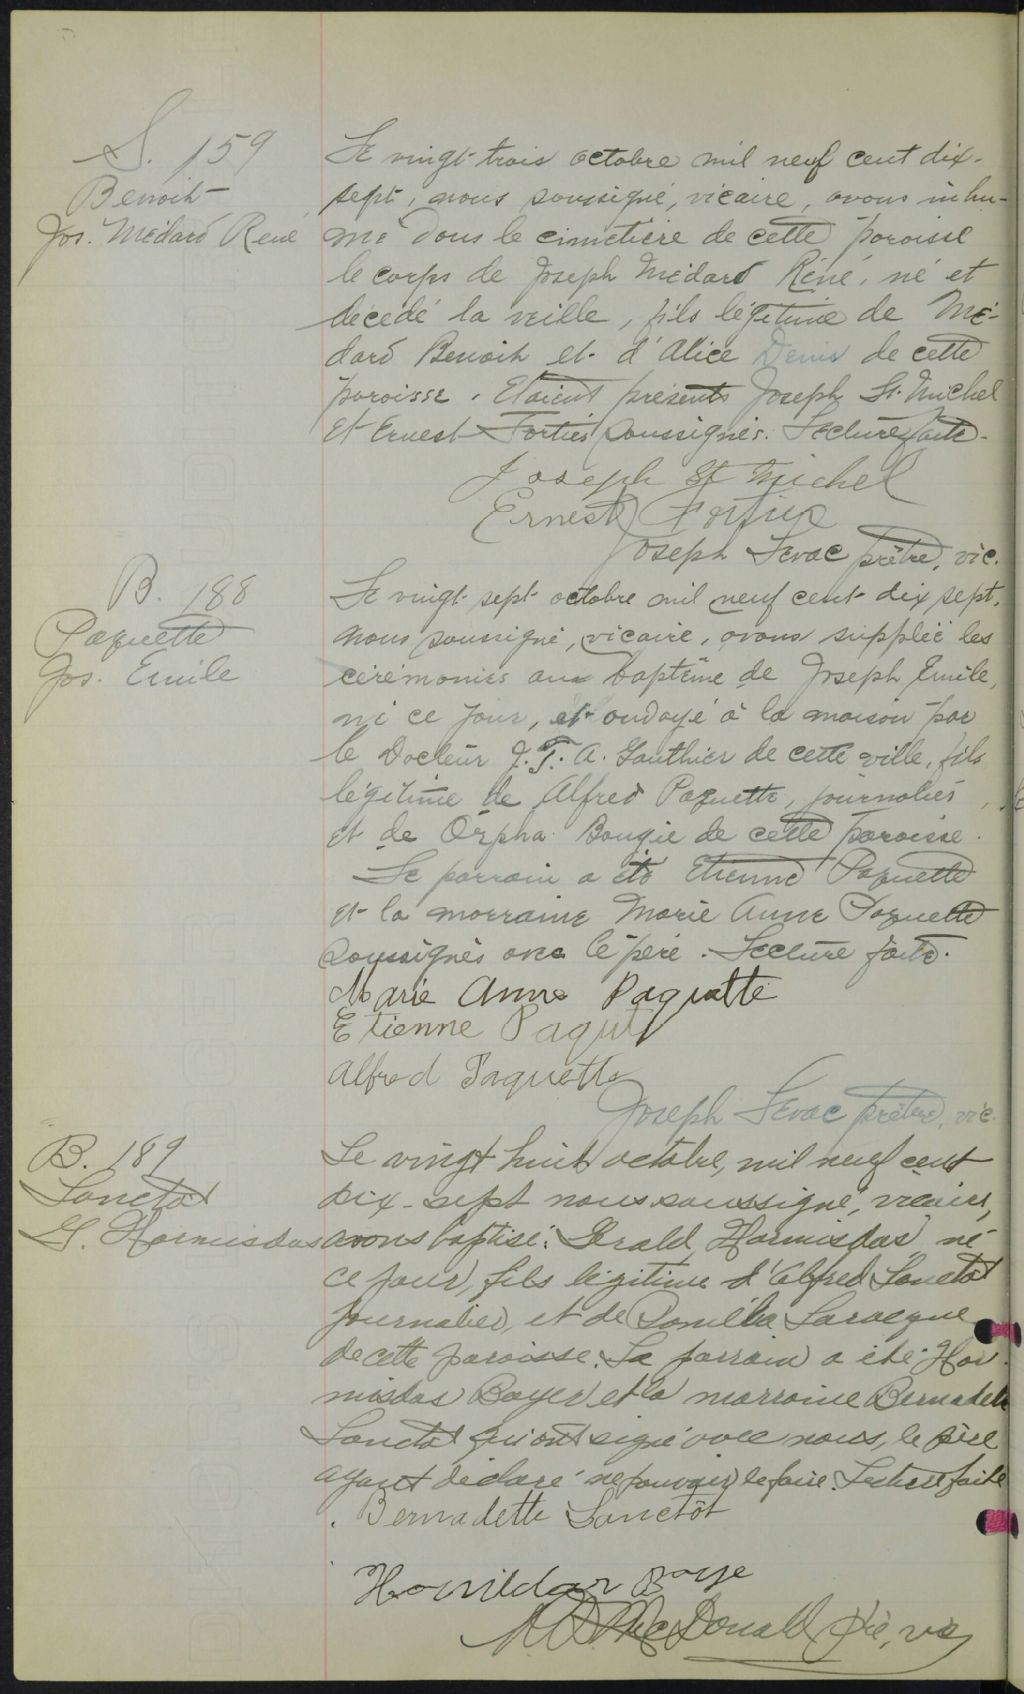 S. 159
Benoit
Jos. Médard René
Le vingt-trois octobre mil neuf cent dix-
sept, nous soussigné, vicaire, avons inhu-
mé dans le cimetière de cette paroisse
le corps de Joseph Médard Réné, né et
décédé la veille, fils légitime de Mé-
dard Benoit et d'Alice Denis de cette
paroisse. Etaient présents Joseph St. Michel
et Ernest Fortier soussignés. Lecture faite.
Joseph St Michel
Ernest Fortier
Joseph Levac prêtre, vic.
B. 188
Paquette
Jos. Emile
Le vingt-sept octobre mil neuf cent dix sept,
nous soussigné, vicaire, avons suppléé les
cérémonies au baptême de Joseph Emile,
né ce jour, et ondoyé à la maison par
le Docteur J. T. A. Gauthier de cette ville, fils
légitime de Alfred Paquette, journalier,
et de Orpha Bougie de cette paroisse.
Le parrain a été Etienne Paquette
et la marraine Marie Anne Paquette
soussignés avec le père. Lecture faite.
Marie Anne Paquette
Etienne Paquet
Alfred Paquette
Joseph Levac prêtre, vic.
B. 189
Sanctot
G. Hormisdas
Le vingt huit octobre, mil neuf cent
dix-sept nous soussigné, vicaire,
avons baptisé: Gérald Hormisdas né
ce jour, fils légitime d'Alfred Sanctot
journalier, et de Laroque
de cette paroisse. Le parrain a été Hor-
misdas Boyer et la marraine Bernadette
Sanctot qui ont signé avec nous, le père
ayant déclaré ne pouvoir le faire. Lecture faite
Bernadette Sanctôt
Hormildas Boye
McDonald Ptre, vic